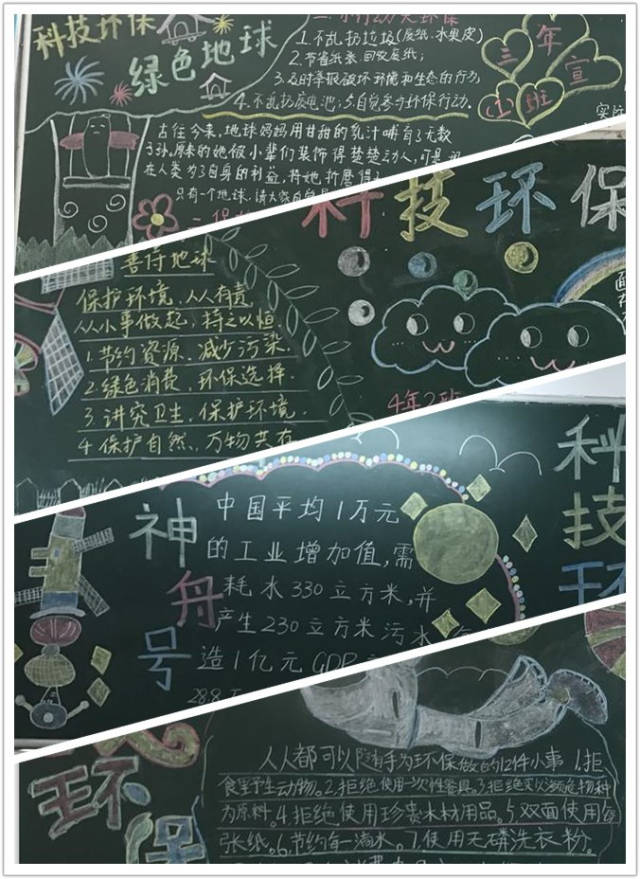 科技环保
绿色地球
二.小行动大环保
1.不乱扔垃圾(废纸、水果皮)
2.节省纸张、回收废纸;
3.及时举报破坏环境和生态的行为
4.不乱扔废电池;5.自觉参与环保行动.
三年
宣
(1)班
古往今来,地球妈妈用甘甜的乳汁哺育了无数
子孙.原来的她被小辈们装饰得楚楚动人,可是
在人类为了自身的利益,将她折磨得
只有一个地球,请大家自
科技环保
善待地球
保护环境,人人有责
从小事做起,持之以恒.
1.节约资源、减少污染
2.绿色消费、环保选择.
3.讲究卫生、保护环境.
4.保护自然、万物共存
4年2班
神舟号
中国平均1万元
的工业增加值,需
耗水330立方米,并
产生230立方米污水
造1亿元GDP
28.8
科技环
环保
人人都可以随手为环保做的12件小事 1.拒
食野生动物。2.拒绝使用一次性餐具.3.拒绝买以濒危物种
为原料。4.拒绝使用珍贵木材用品。5.双面使用每
张纸。6.节约每一滴水。7.使用无磷洗衣粉。